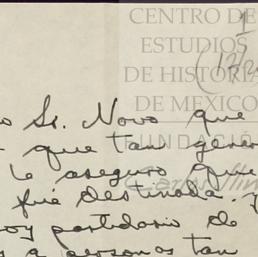 CENTRO DE
ESTUDIOS
DE HISTORIA
DE MEXICO
FUNDACIÓ
1
Sr. Novo que
que tan gener
le aseguro que
fué destinada.
oy partidario de
a personas tan